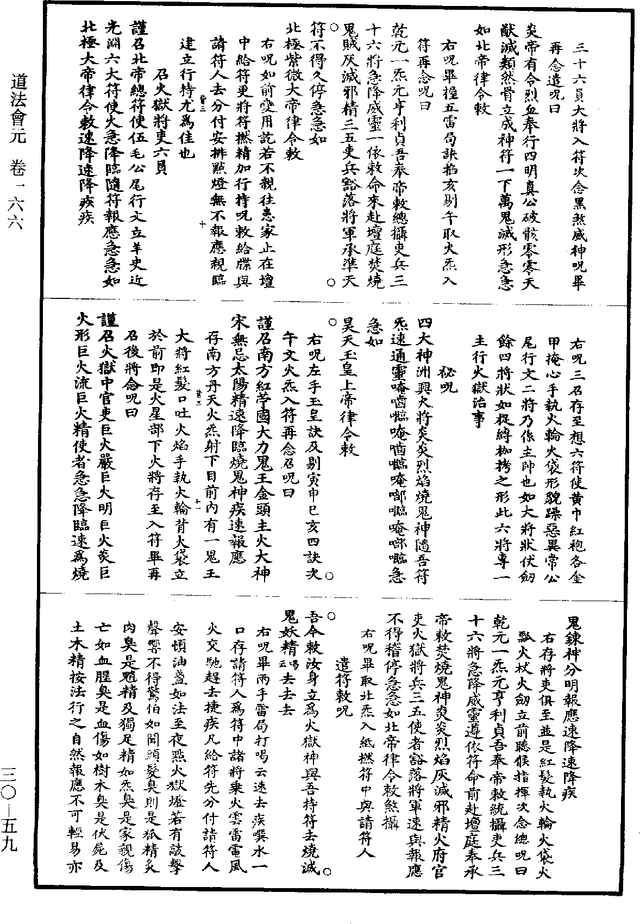 道法會元　卷一六六
三〇—五九
三十六員大將入符次念黑煞威神呪畢
再念遣呪曰
炎帝有令烈血奉行四明真公破骸零零天
獸滅類然骨立成神符一下萬鬼滅形急急
如北帝律令敕
右呪畢握五雷局訣掐亥剔午取火炁入
符再念呪曰
乾元一炁元亨利貞吾奉帝敕總攝吏兵三
十六將急降威靈一依敕命來赴壇庭焚燒
鬼賊灰滅邪精三五吏兵豁落將軍承準天
符不得久停急急如
北極紫微大帝律令敕
右呪如前變用訖若不親往患家止在壇
中給符更將符撚精加行持呪敕給牒與
請符人去分付安排㸃燈無不報應親臨
建立行持尤爲佳也
召火獄將吏六員
謹召北帝總符使伍毛公尾行文立羊史近
光淵六大符使火急降臨隨符報應急急如
北極大帝律令敕速降速降疾疾
右呪三召存至想六符使黄巾紅袍各金
甲掩心手執火輪火袋形貌躁惡異常公
尾行文二將乃係主帥也如大將狀伏劒
餘四將狀如從縛枷拷之形此六將專一
主行火獄治事
秘呪
四大神洲興大將炎炎烈焰燒鬼神隨吾符
急如
昊天玉皇上帝律令敕
右呪左手玉皇訣及剔寅申巳亥四訣次
午文火炁入符再念召呪曰
謹召南方紅苓國大力鬼王金頭主火大神
宋無忌太陽精速降臨燒鬼神疾速報應
存南方丹天火炁射下目前内有一鬼王
大將紅髮口吐火焰手執火輪背火袋立
於前即是火星部下火將存至入符畢再
召後將念呪曰
謹召火獄中官吏巨火嚴巨火明巨火炎巨
火形巨火流巨火精使者急急降臨速爲燒
鬼鍊神分明報應速降速降疾
右存將吏俱至並是紅髮執火輪火袋火
瓢火杖火劒立前聽候指揮次念總呪曰
乾元一炁元亨利貞吾奉帝敕統攝吏兵三
十六將急降威靈遵依符命前赴壇庭奉承
帝敕焚燒鬼神炎炎烈焰灰滅邪精火府官
吏火獄將兵三五使者豁落將軍速與報應
不得稽停急急如北帝律令敕煞攝
右呪畢取北炁入紙撚符中與請符人
遣符敕呪
吾令敕汝身立爲火獄神與吾持符去燒滅
鬼妖精唱云去去去
右呪畢兩手雷局打喝云速去疾巽水一
口存請符人爲符中諸將乘火雲雷電風
火交馳趕去捷疾凡給符先分付請符人
安頓油盞如法至夜㸃火獄燈若有敲擊
聲響不得驚怕如聞頭髮臭則是狐精炙
肉臭是魈精及獨足精如炁臭是家親傷
亡如血腥臭是血傷如樹木臭是伏屍及
土木精按法行之自然報應不可輕易亦